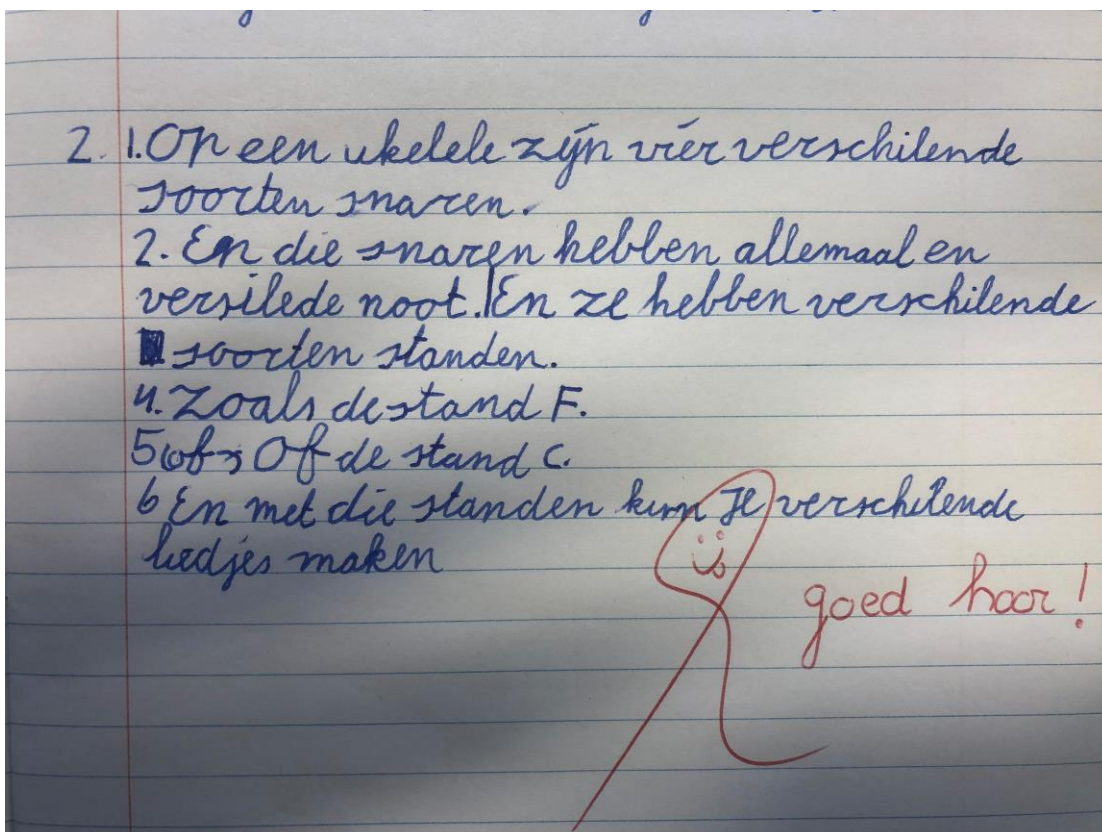 2. 1. Op een ukelele zijn vier verschilende
soorten snaren.
2. En die snaren hebben allemaal en
versilede noot. En ze hebben verschilende
soorten standen.
4. Zoals de stand F.
5 of Of de stand C.
6 En met die standen kun je verschilende
liedjes maken
goed hoor!